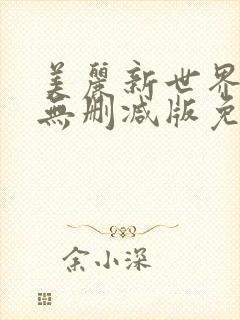 美麗新世界
無刪減版免
余小深